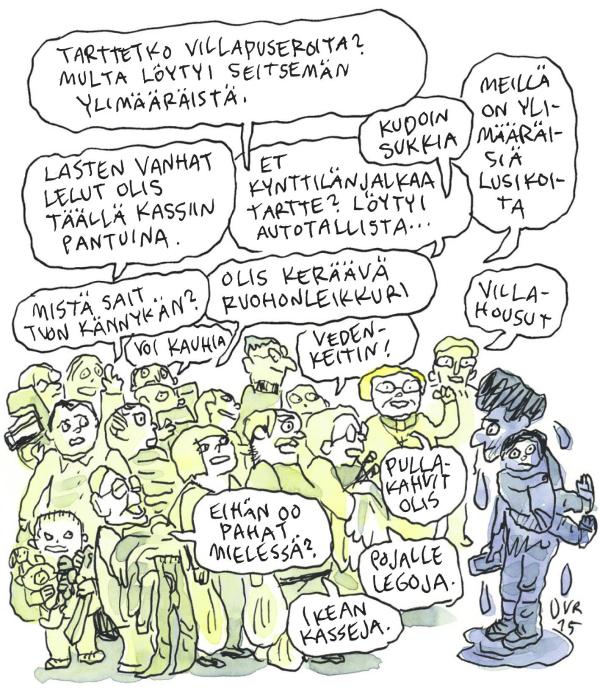 TARTTETKO VILLAPUSEROITA?
MULTA LÖYTYI SEITSEMÄN
YLIMÄÄRÄISTÄ.
MEILLÄ
ON YLI-
MÄÄRÄI-
SIÄ
LUSIKOI-
TA
KUDOIN
SUKKIA
LASTEN VANHAT
LELUT OLIS
TÄÄLLÄ KASSIIN
PANTUINA.
ET
KYNTTILÄNJALKAA
TARTTE? LÖYTYI
AUTOTALLISTA...
OLIS KERÄÄVÄ
RUOHONLEIKKURI
MISTÄ SAIT
TUON KÄNNYKÄN?
VILLA-
HOUSUT
VOI KAUHIA
VEDEN-
KEITIN!
PULLA-
KAHVIT
OLIS
EIHÄN OO
PAHAT
MIELESSÄ?
POJALLE
LEGOJA.
IKEAN
KASSEJA.
UVR
15